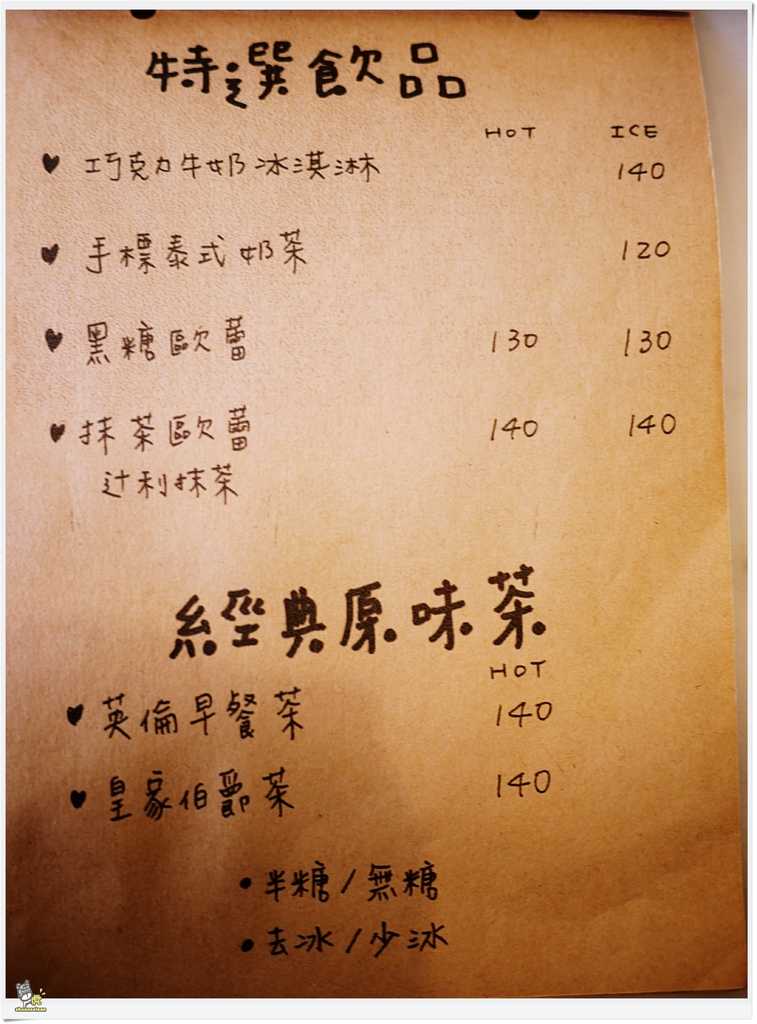 特選飲品
HOT ICE
♥ 巧克力牛奶冰淇淋 140
♥ 手標泰式奶茶 120
♥ 黑糖歐蕾 130 130
♥ 抹茶歐蕾 140 140
辻利抹茶
經典原味茶
HOT
♥ 英倫早餐茶 140
♥ 皇家伯爵茶 140
• 半糖/無糖
• 去冰/少冰